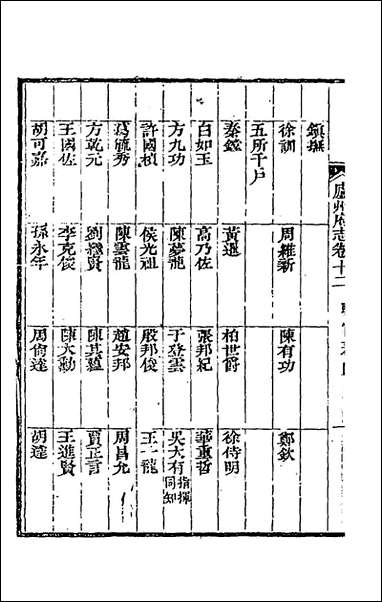 廬州府志卷十二
鎮撫
徐訓 周維新 陳有功 鄭欽
五所千戶
秦鏜 黃選 柏世爵 徐侍明
白如玉 高乃佐 張邦紀 龔重哲
方九功 陳夢龍 于登雲 吳大有指揮同知
許國楨 侯光祖 殷邦俊 王一龍
葛毓秀 陳雲龍 趙安邦 周昌允
方乾元 劉繼賢 陳其蘊 賈正言
王國佐 李克俊 陳大勳 王進賢
胡可嘉 孫永年 周尙達 胡達